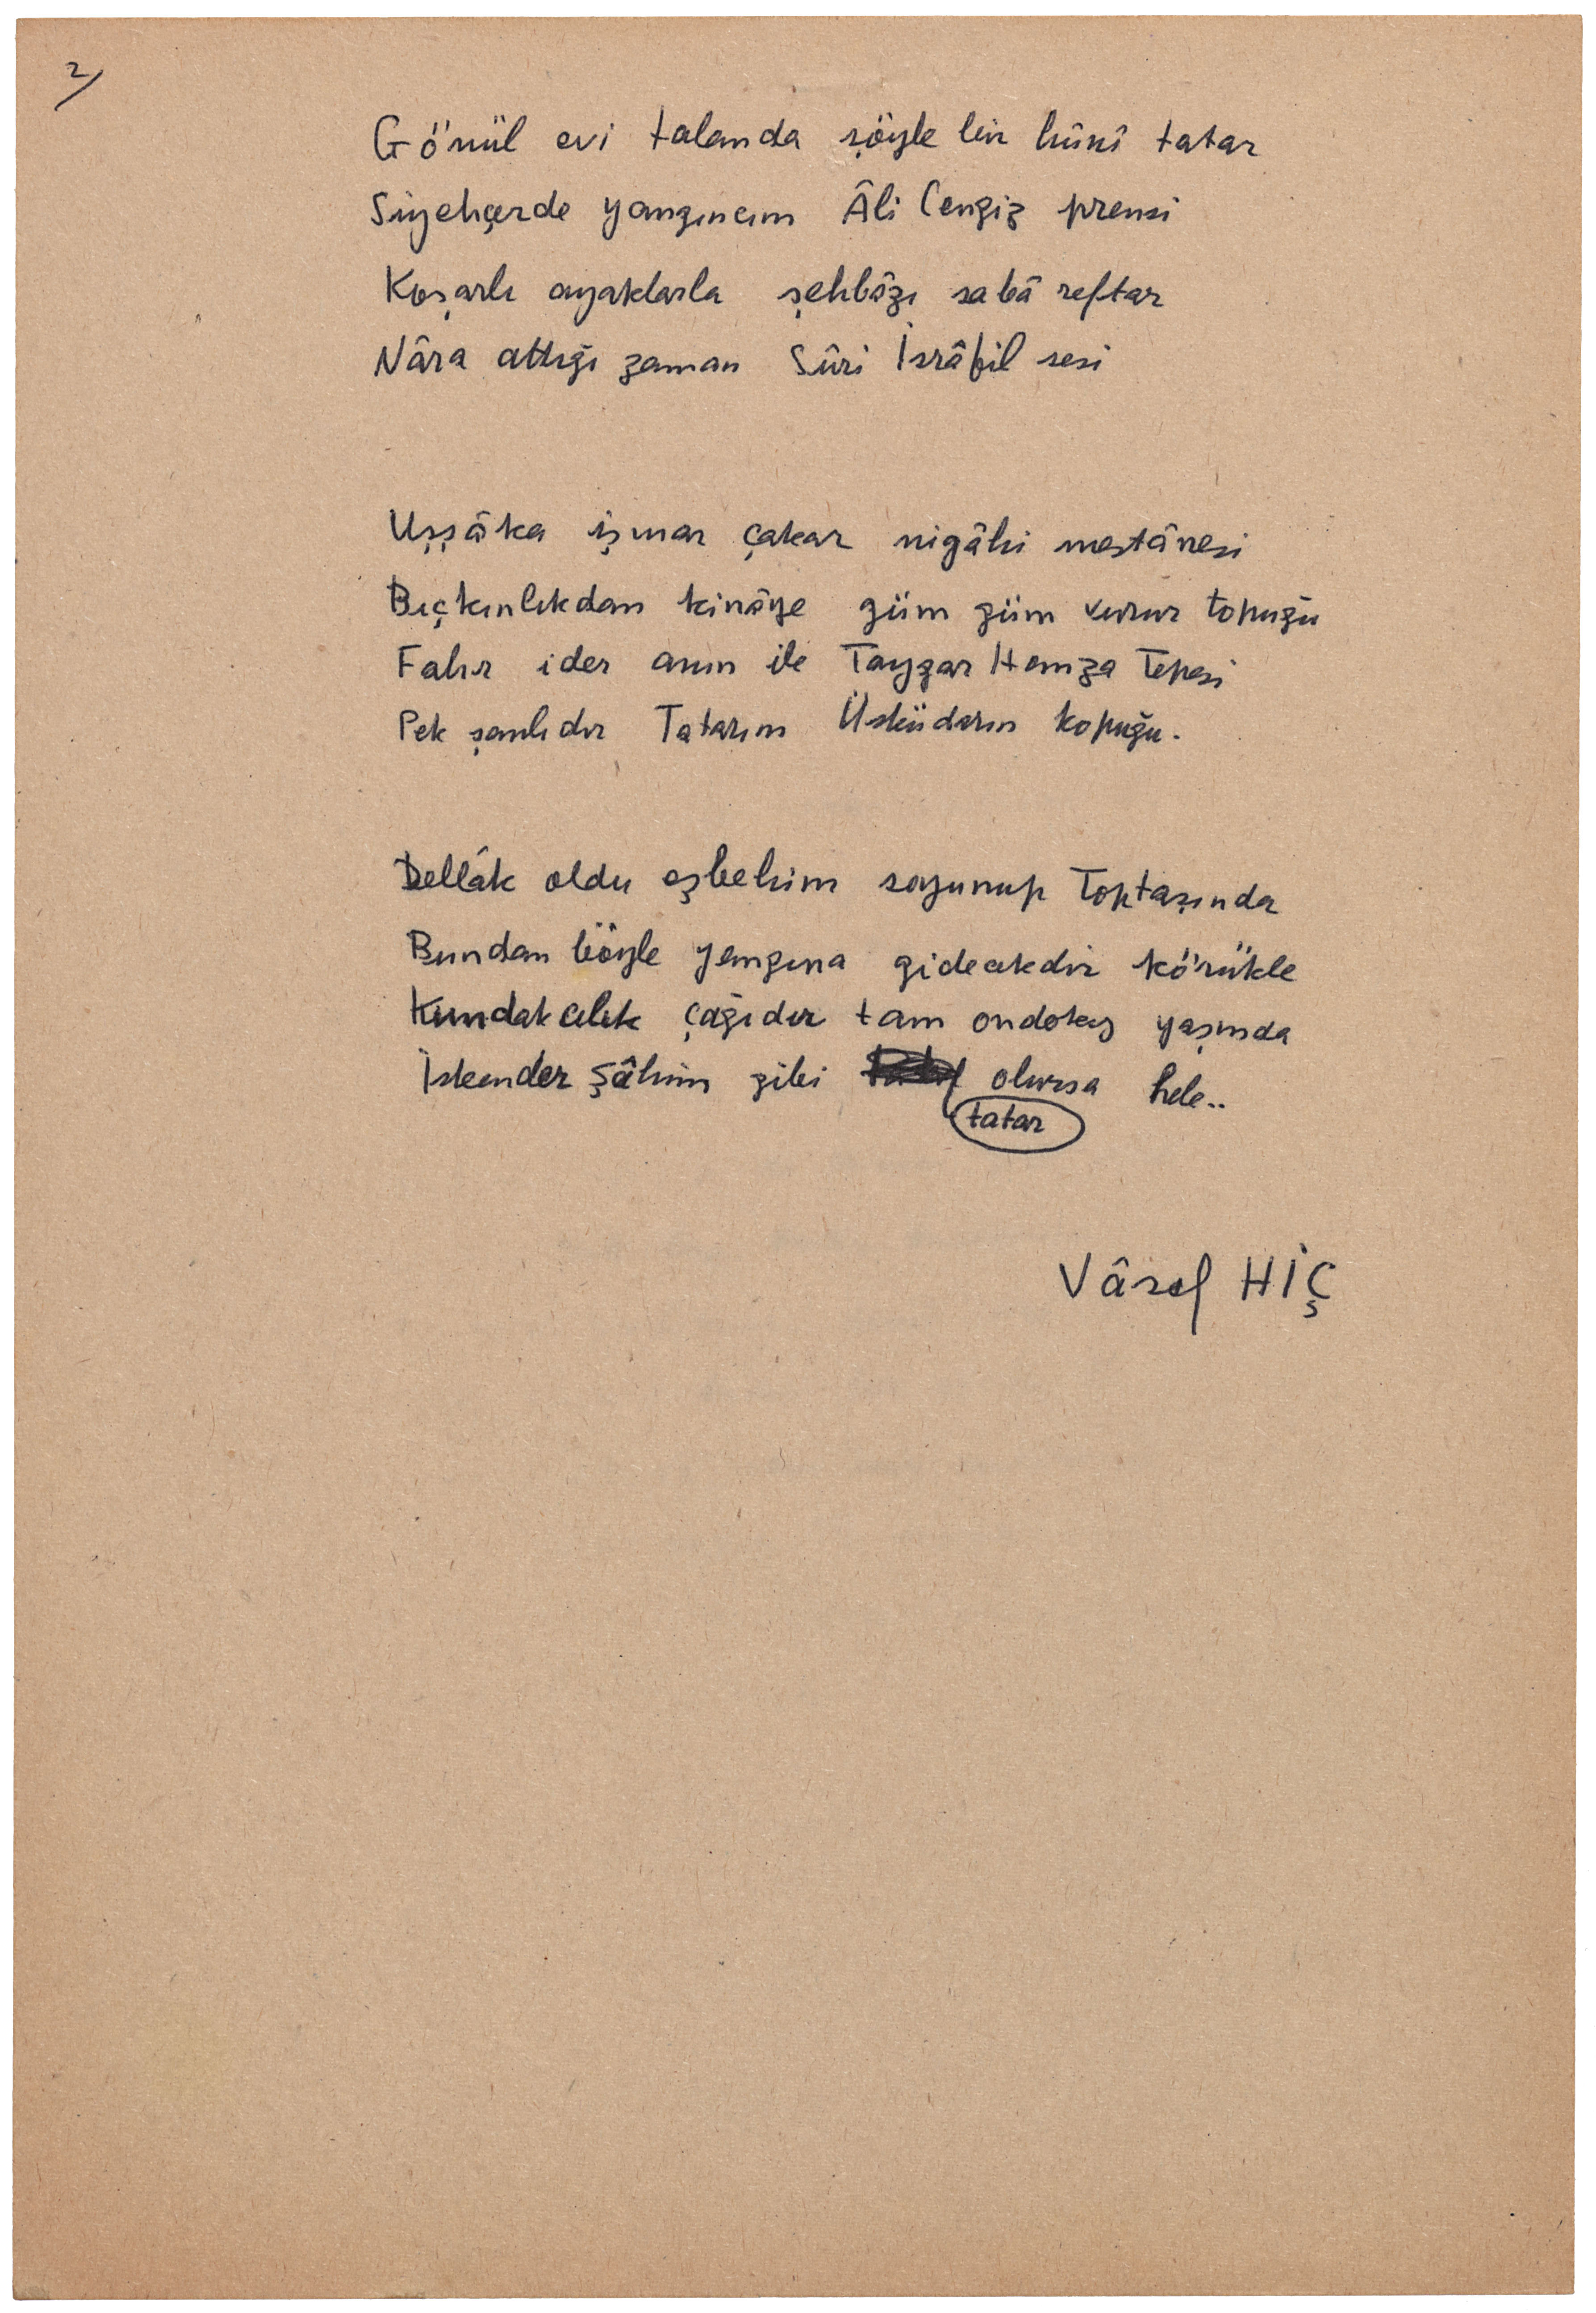 2/
Gönül evi talanda şöyle bir hûnî tatar
Siyehçerde yangıncım Âli Cengiz prensi
Koşarlı ayaklarla şehbâzı sabâ reftar
Nâra attığı zaman Sûri İsrâfil sesi
Uşşâka işmar çakar nigâhi mestânesi
Bıçkınlıkdan kinâye güm güm vurur topuğu
Fahır ider anın ile Taygar Hamza Tepesi
Pek şanlıdır Tatarım Üsküdarın kopuğu.
Dellâk oldu eşbehim soyunup Toptaşında
Bundan böyle yangına gidecekdir körükle
Kundakcılık çağıdır tam ondokuz yaşında
İskender Şâhım gibi olursa hele..
tatar
Vâsıf HİÇ